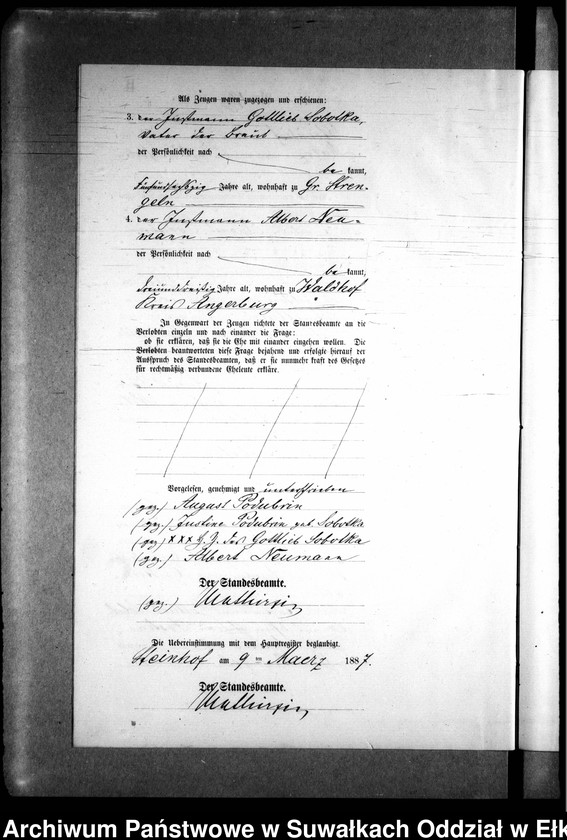 Als Zeugen waren zugezogen und erschienen:
3. der Instmann Gottlieb Sobotka,
Vater der Braut
der Persönlichkeit nach
be kannt,
fünfundsechszig Jahre alt, wohnhaft zu Gr. Stren-
geln
4. der Instmann Albert Neu-
mann
der Persönlichkeit nach
be kannt,
dreiunddreißig Jahre alt, wohnhaft zu Waldhof
Kreis Angerburg
In Gegenwart der Zeugen richtete der Standesbeamte an die
Verlobten einzeln und nach einander die Frage:
ob sie erklären, daß sie die Ehe mit einander eingehen wollen. Die
Verlobten beantworteten diese Frage bejahend und erfolgte hierauf der
Ausspruch des Standesbeamten, daß er sie nunmehr kraft des Gesetzes
für rechtmäßig verbundene Eheleute erkläre.
Vorgelesen, genehmigt und unterschrieben
(gez.) August Podubrin
(gez.) Justine Podubrin geb. Sobotka
(gez.) xxx H. Z. des Gottlieb Sobotka
(gez.) Albert Neumann
Der Standesbeamte.
(gez.)
Die Uebereinstimmung mit dem Hauptregister beglaubigt.
Steinhof am 9 ten Maerz 1887.
Der Standesbeamte.
Archiwum Państwowe w Suwałkach Oddział w Ełk